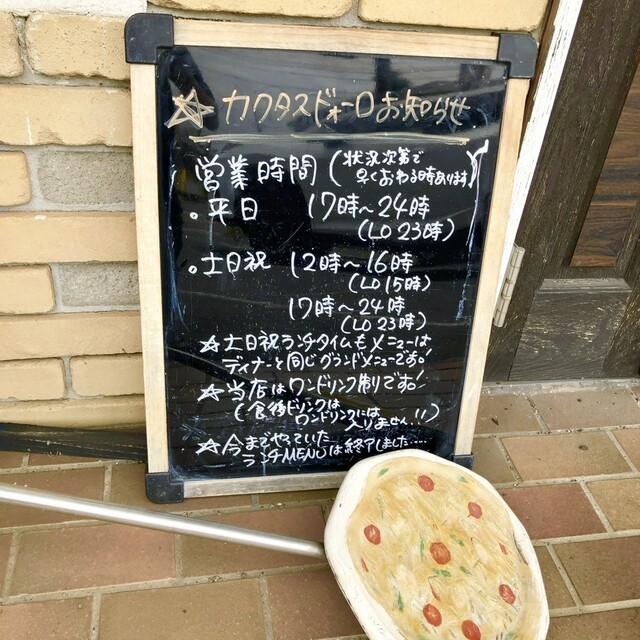 ☆ カクタスドォーロお知らせ
営業時間 (状況次第で
早くおわる時あります)
• 平日 17時〜24時
(LO 23時)
• 土日祝 12時〜16時
(LO 15時)
17時〜24時
(LO 23時)
☆ 土日祝ランチタイムもメニューは
ディナーと同じグランドメニューです!
☆ 当店はワンドリンク制です!
(食後ドリンクは
ワンドリンクには
入りません!!)
☆ 今までやっていた
ランチMENUは終了しました....